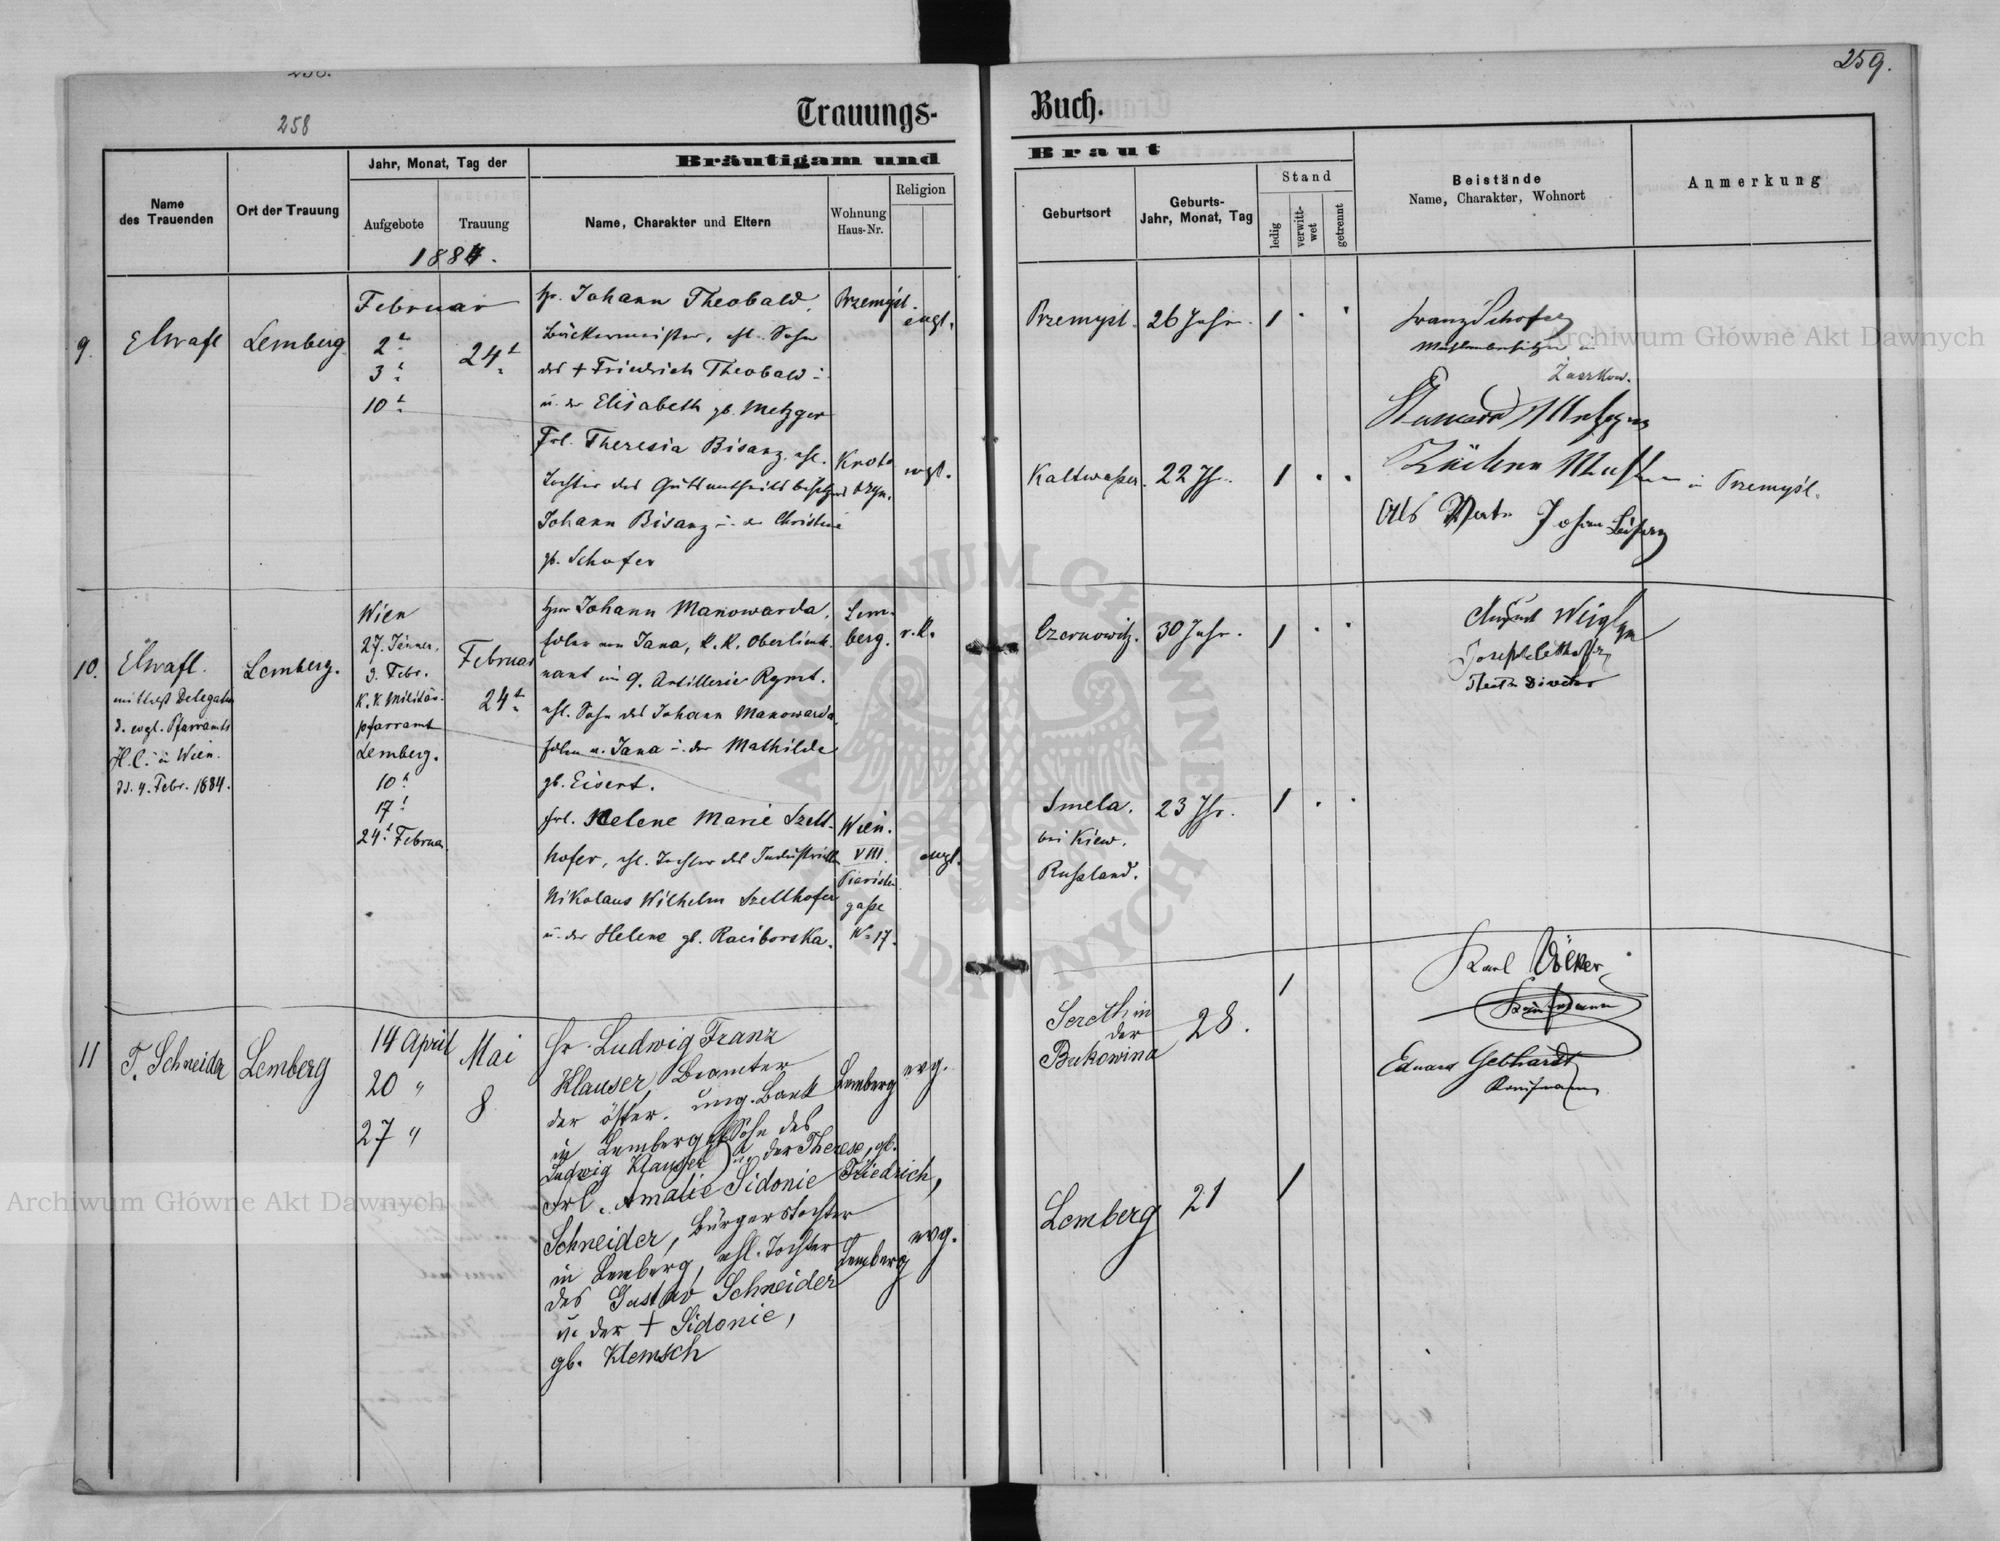 258.
259.
258
Trauungs-Buch.
Name des Trauenden
Ort der Trauung
Jahr, Monat, Tag der
Aufgebote
Trauung
1884.
Bräutigam und Braut
Name, Charakter und Eltern
Wohnung Haus-Nr.
Religion
Geburtsort
Geburts-Jahr, Monat, Tag
Stand
ledig
verwittwet
getrennt
Beistände
Name, Charakter, Wohnort
Anmerkung
9.
Lemberg
Februar
2t
3t
10t
24t
Hr. Johann Theobald,
Bäckermeister, ehl. Sohn
des + Friedrich Theobald
u. der Elisabeth gb. Metzger
Przemyśl.
evgl.
Przemyśl.
26 Jahr.
1
Franz Schofer
Mühlenbesitzer in
Frl. Theresia Bisanz, ehl.
Tochter des Gutsantheilsbesitzers
Johann Bisanz u. der Christine
gb. Schofer
evgl.
Kaltwasser.
22 Jh.
1
in Przemyśl.
Als
Johann
10.
mittelst Delegation
d. evgl. Pfarramts
H.C. in Wien.
dd. 4. Febr. 1884.
Lemberg.
Wien
27. Jänner.
3. Febr.
K.K. Militär-
pfarramt
Lemberg.
10t
17t
24t Februar
Februar
24t
Herr Johann Manowarda,
Edler von Jana, K.K. Oberlieut-
nant im 9. Artillerie Rgmt.
ehl. Sohn des Johann Manowarda
Edlen v. Jana u. der Mathilde
gb. Eisert.
Lem-
berg.
r.k.
Czernowitz.
30 Jahr.
1
August Weigl
Director
Frl. Helene Marie Szell-
hofer, ehl. Tochter des Industriellen
Nikolaus Wilhelm Szellhofer
u. der Helene gb. Raciborska.
Wien.
VIII.
Piaristen
gasse
No 17.
evgl.
Smela.
bei Kiew.
Russland.
23 Jhr.
1
11
T. Schneider
Lemberg
14 April
20 "
27 "
Mai
8
Hr. Ludwig Franz
Klauser, Beamter
der öster. ung. Bank
in Lemberg, ehl. Sohn des
Ludwig Klauser u. der Therese, gb.
Friedrich,
Lemberg
evg.
Sereth in
der
Bukowina
28.
1
Karl Völker
Kaufmann
Eduard Gebhardt
Kaufmann
Frl. Amalie Sidonie
Schneider, Bürgerstochter
in Lemberg, ehl. Tochter
des Gustav Schneider
u. der + Sidonie,
gb. Klemsch
Lemberg
evg.
Lemberg
21
1
Archiwum Główne Akt Dawnych
Archiwum Główne Akt Dawnych
ARCHIWUM GŁÓWNE AKT DAWNYCH